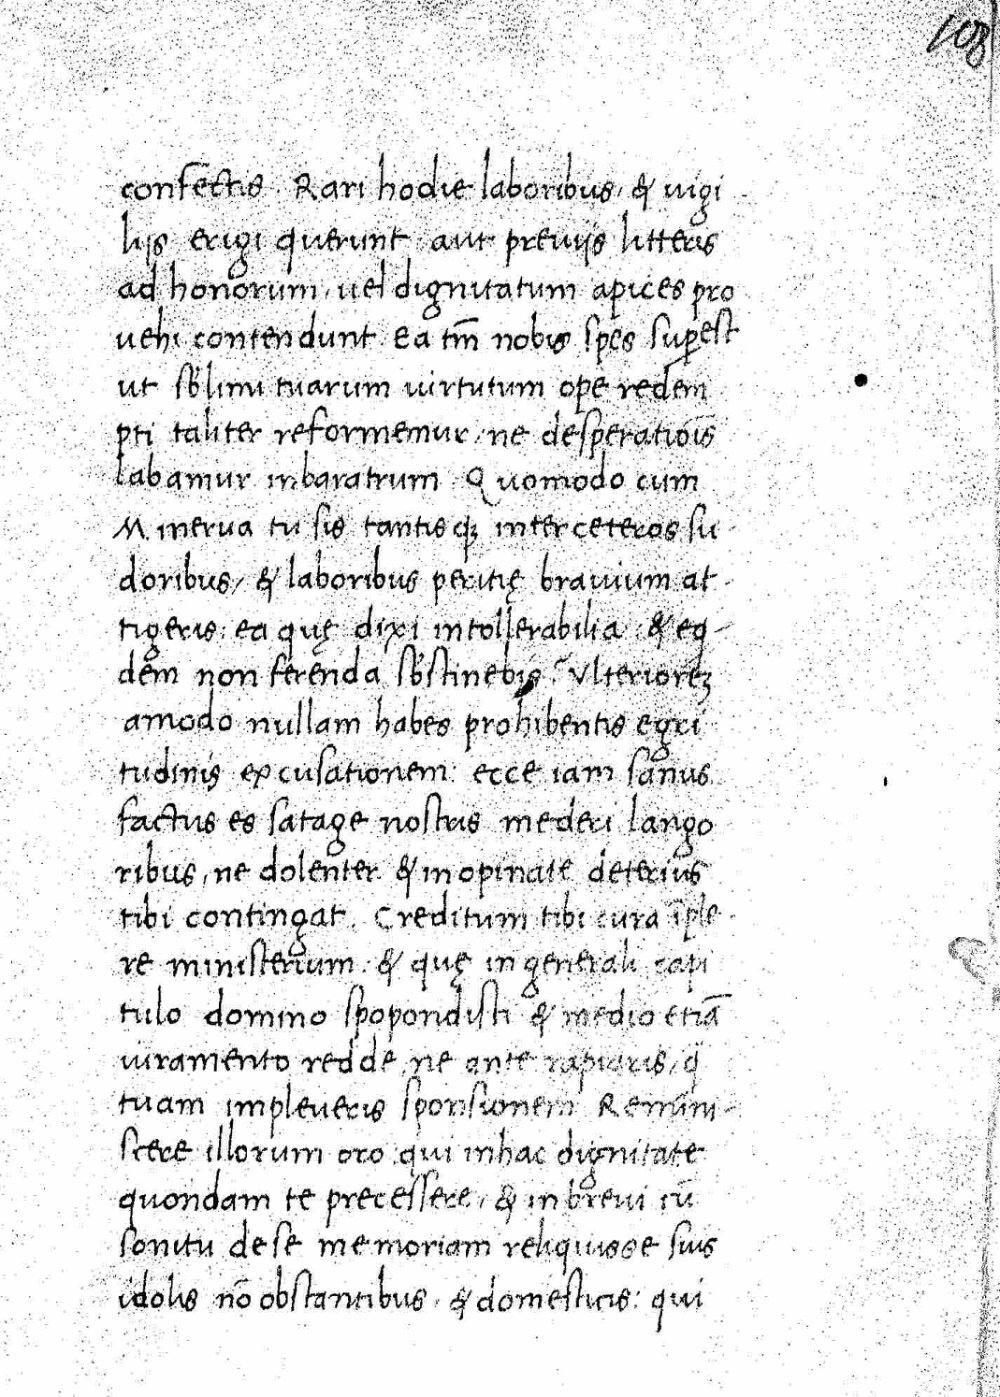 108
confectis. Rari hodie laboribus, & uigi
lijs erigi querunt: aut preuijs litteris
ad honorum, uel dignitatum apices pro
uehi contendunt. Ea tm̄ nobis spes supest
ut sb̄limi tuarum uirtutum ope redem
pti taliter reformemur, ne desperatiōis
labamur inbaratrum. Quomodo cum
Minerua tu sis tantisq; inter ceteros su
doribus, & laboribus peritię brauium at-
tigeris: ea quę dixi intollerabilia, & eq-
dem non ferenda sb̄stinebis? Vlteriorēz
amodo nullam habes prohibentis egri
tudinis excusationem: ecce iam sanus
factus es satage nostris mederi lango
ribus, ne dolenter & inopinate deterius
tibi contingat. Creditum tibi cura īple-
re ministerium, & quę in generali capi
tulo domino spopondisti & medio etiā
iuramento redde, ne ante rapiaris, q̄
tuam impleueris sponsionem. Remini-
scere illorum oro qui inhac dignitate
quondam te precessere, & in breui cū
sonitu de se memoriam reliquisse suis
idolis nō obstantibus, & domesticis: qui